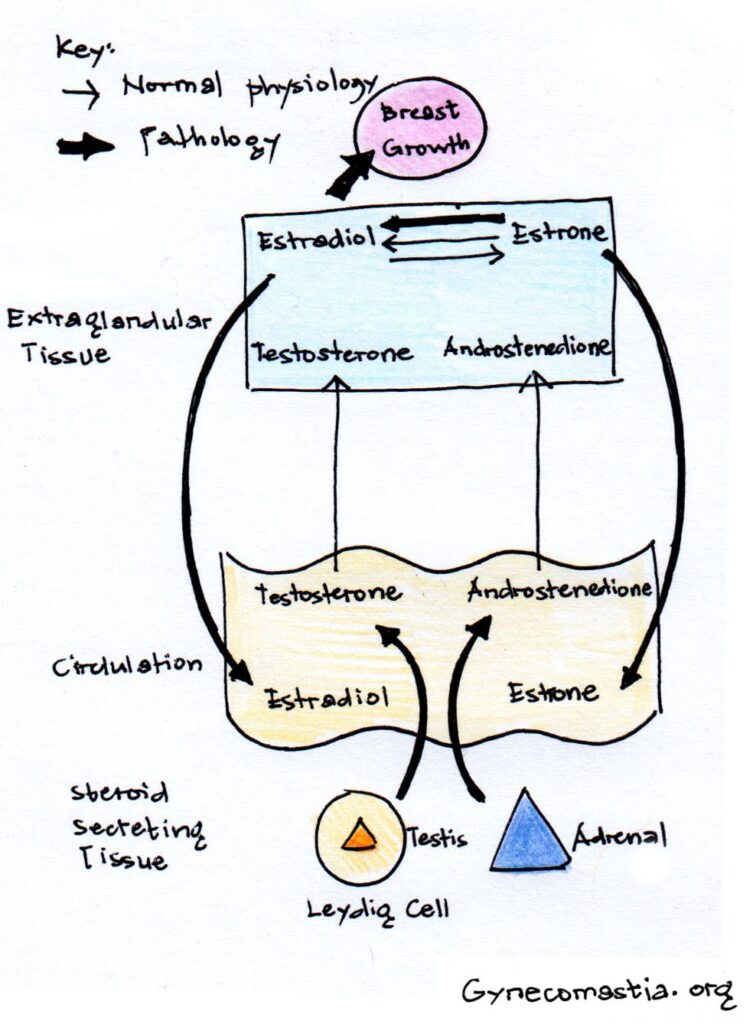 Key:
Normal physiology
Pathology
Breast
Growth
Estradiol
Estrone
Extraglandular
Tissue
Testosterone
Androstenedione
Testosterone
Androstenedione
Cirdulation
Estradiol
Estrone
Steroid
Secreting
Tissue
Testis
Adrenal
Leydig Cell
Gynecomastia.org